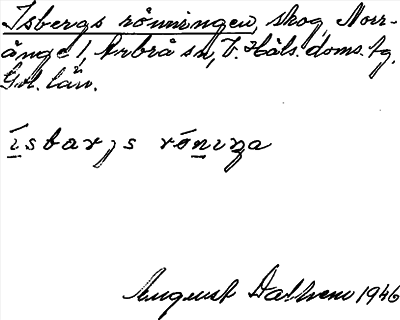 Isbergs rönningen, skog, Norr-
änge 1, Arbrå sn, V. Häls. doms. tg,
Gvl. län.
isbarjs róniŋa
August Dalhem 1946